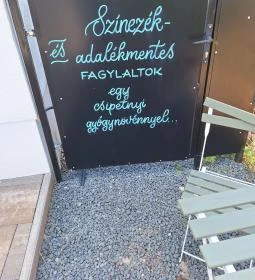 Színezék-
és adalékmentes
FAGYLALTOK
egy
csipetnyi
gyógynövénnyel...